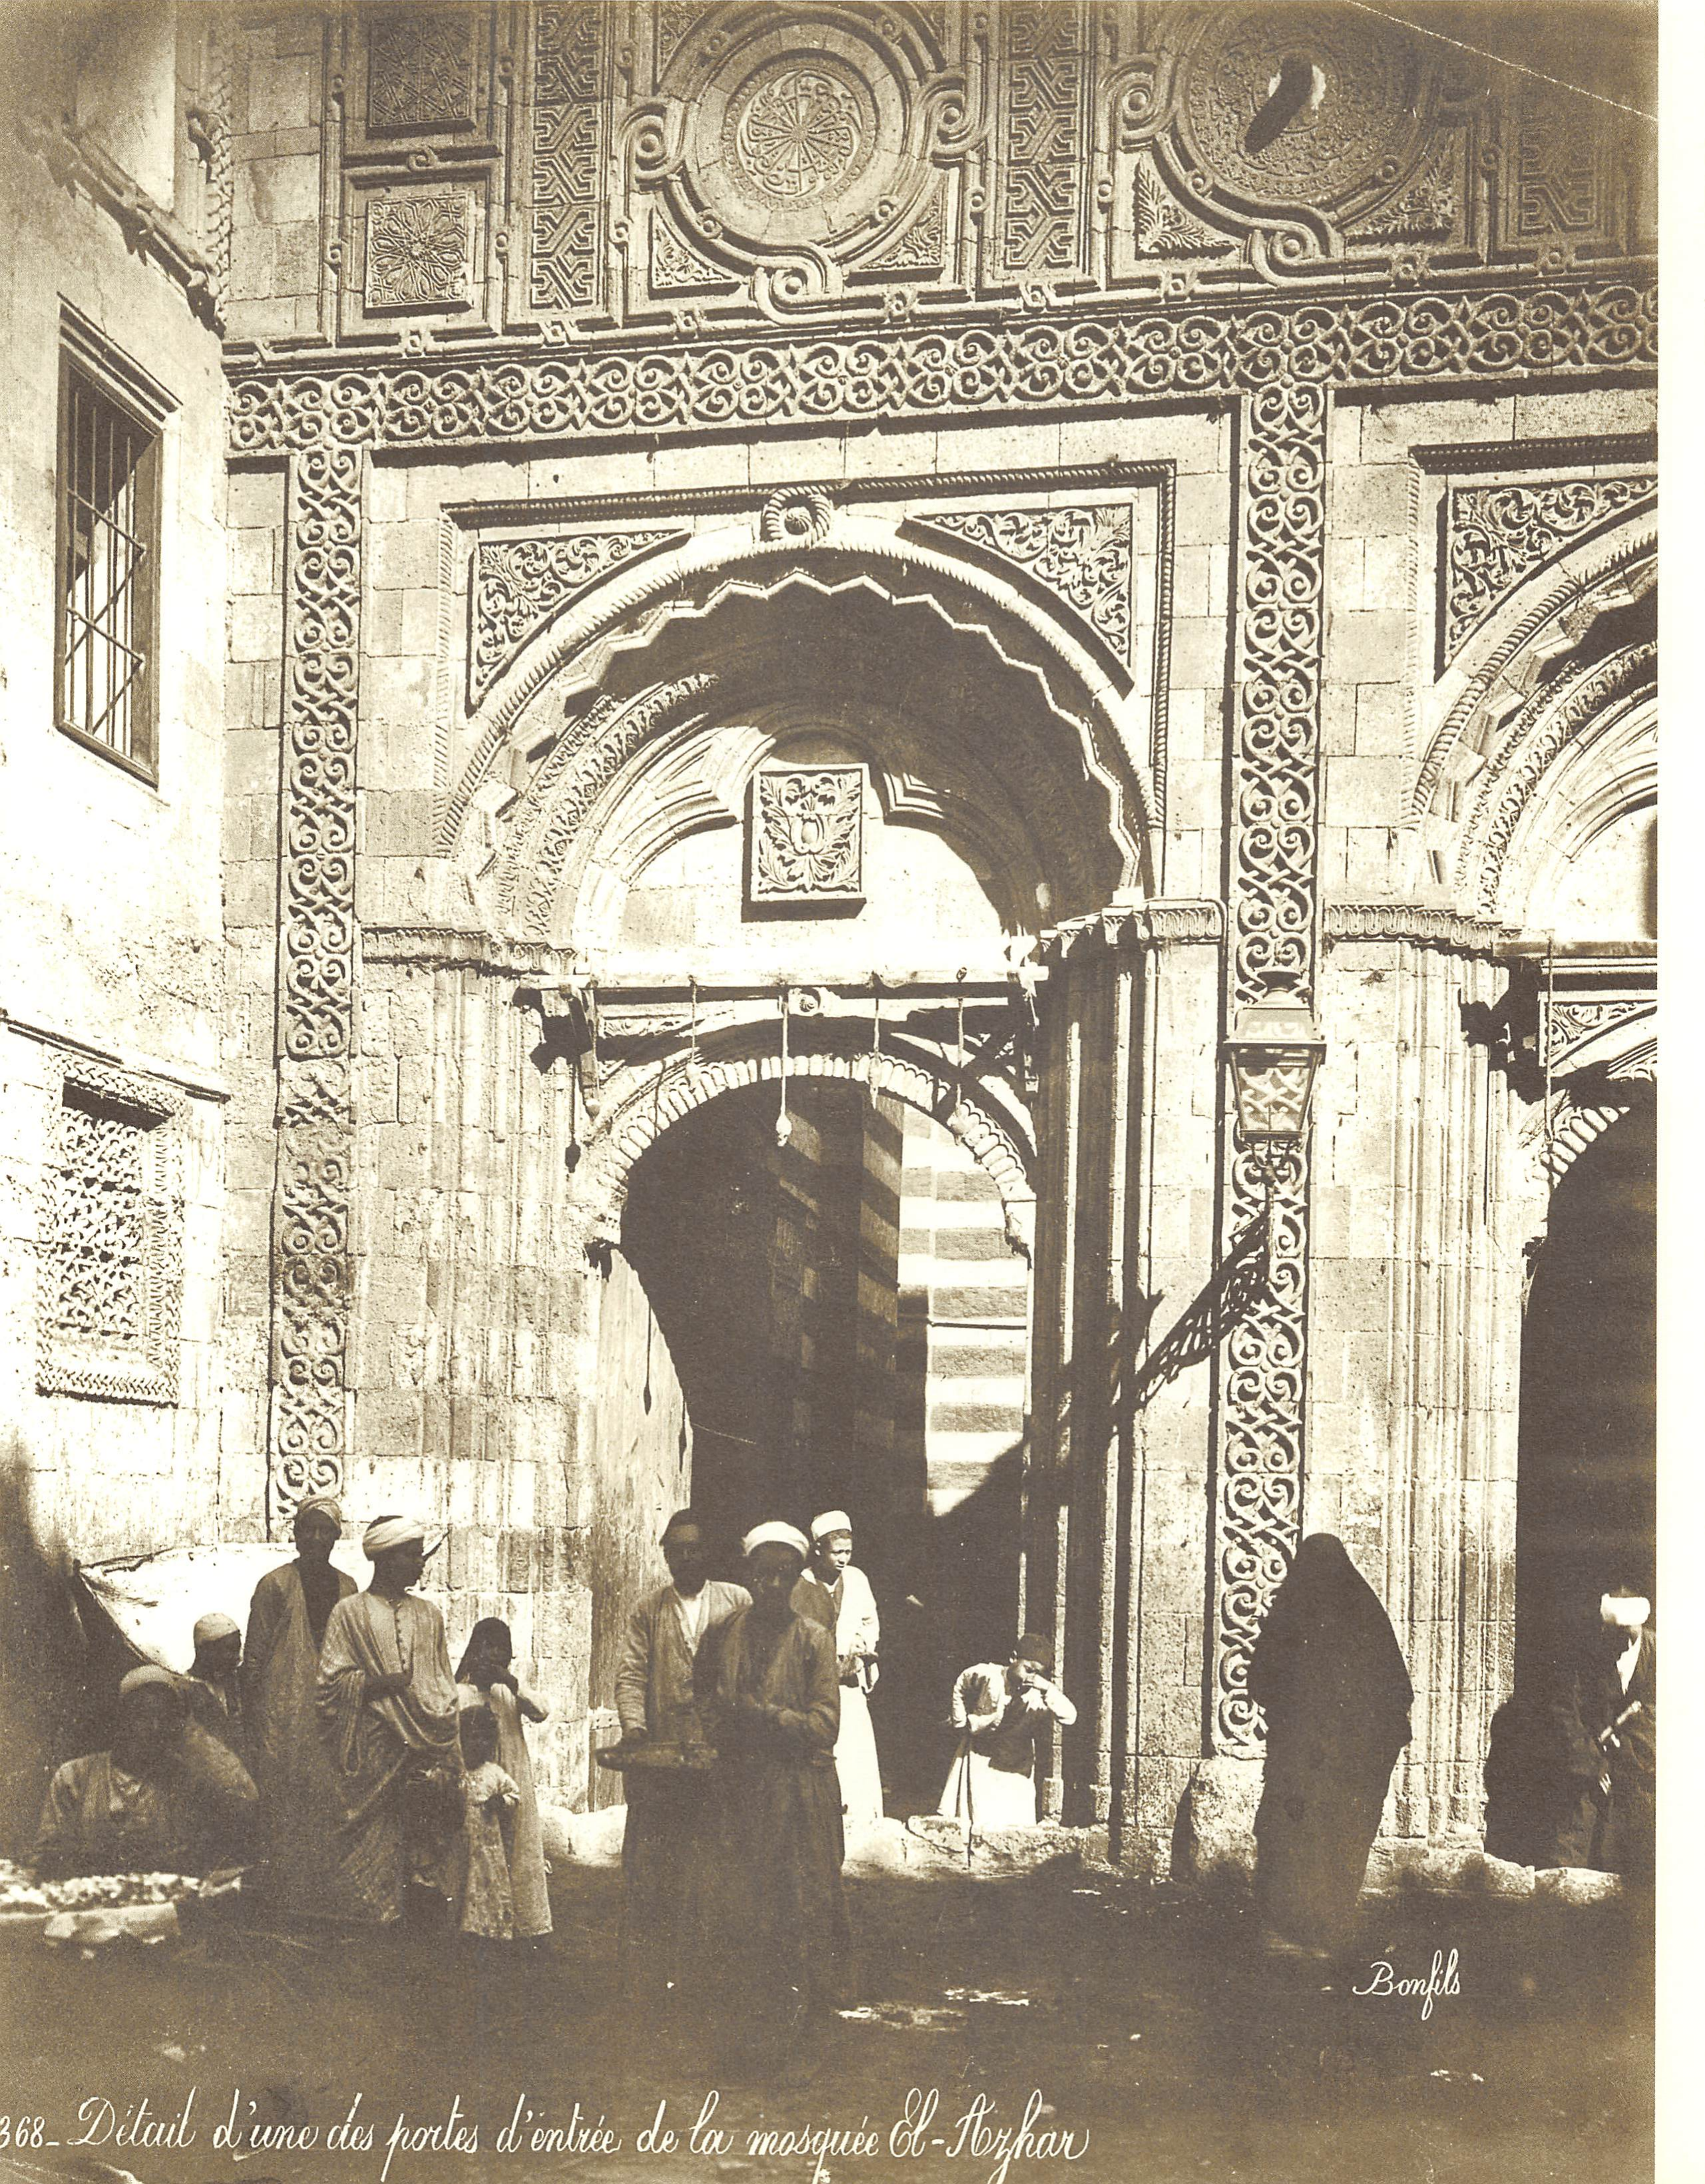 Bonfils
368_ Détail d'une des portes d'entrée de la mosquée El-Azhar